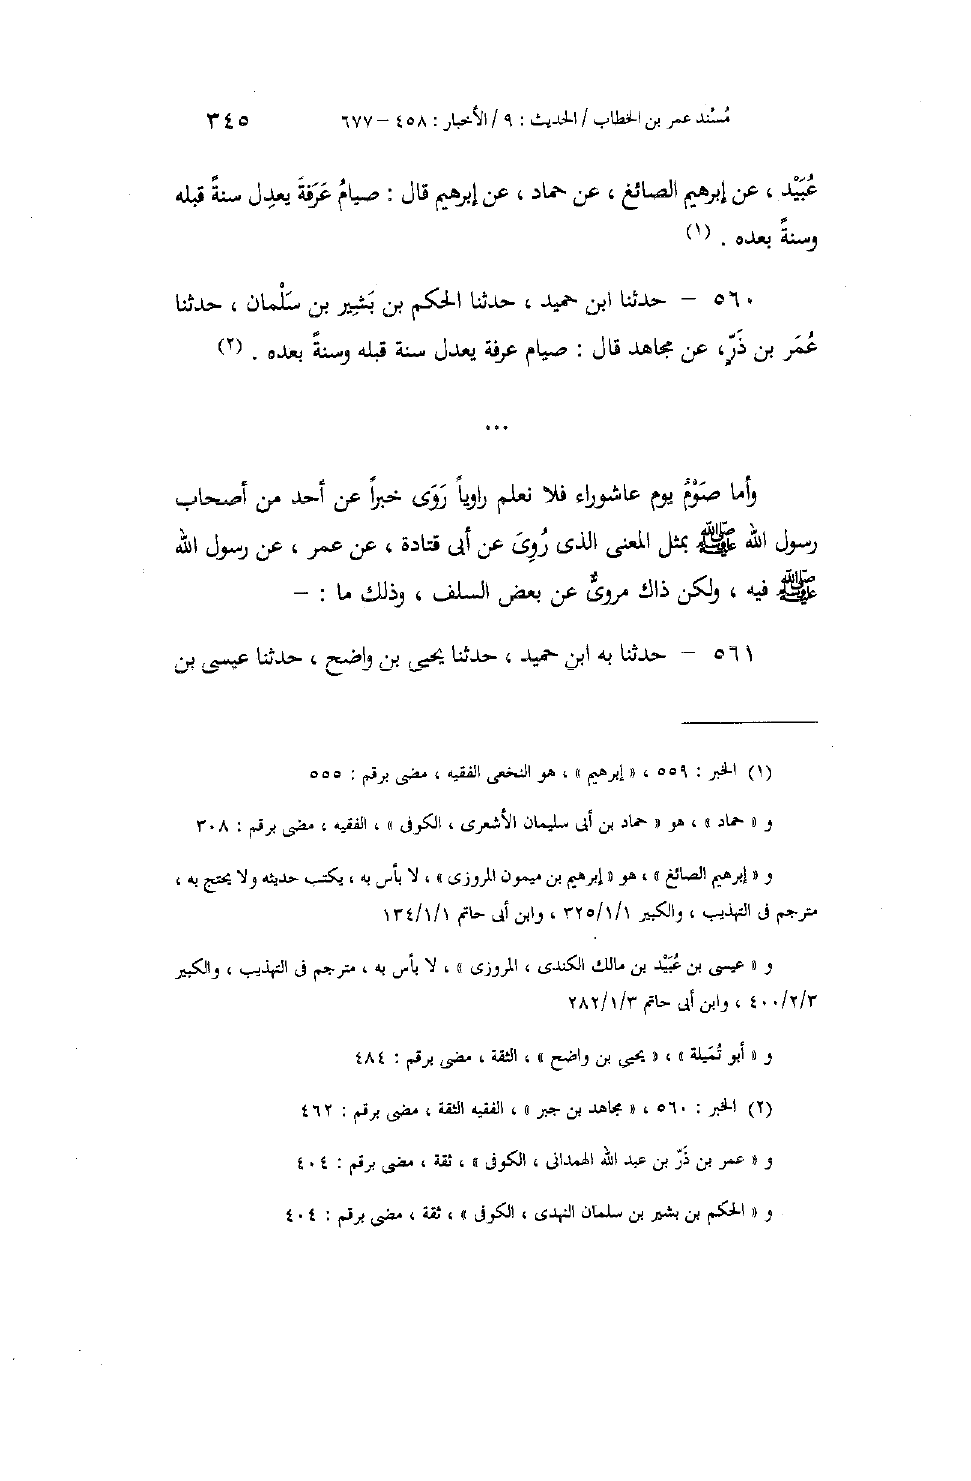 مُسْند عمر بن الخطاب / الحديث : ٩ / الأخبار : ٤٥٨ – ٦٧٧ ٣٤٥
عُبَيْد ، عن إبرهيم الصائغ ، عن حماد ، عن إبرهيم قال : صيامُ عَرَفةَ يعدِل سنةً قبله
وسنةً بعده . (١)
٥٦٠ – حدثنا ابن حميد ، حدثنا الحكم بن بَشِير بن سَلْمان ، حدثنا
عُمَر بن ذَرٍّ، عن مجاهد قال : صيام عرفة يعدل سنة قبله وسنةً بعده . (٢)
...
وأما صَوْمُ يوم عاشوراء فلا نعلم راوياً رَوَى خبراً عن أحد من أصحاب
رسول الله ﷺ بمثل المعنى الذى رُوِىَ عن أبى قتادة ، عن عمر ، عن رسول الله
ﷺ فيه ، ولكن ذاك مروىٌّ عن بعض السلف ، وذلك ما : –
٥٦١ – حدثنا به ابن حميد ، حدثنا يحيى بن واضح ، حدثنا عيسى بن
(١) الخبر : ٥٥٩ ، « إبرهيم » ، هو النخعى الفقيه ، مضى برقم : ٥٥٥
و « حماد » ، هو « حماد بن أبى سليمان الأشعرى ، الكوفى » ، الفقيه ، مضى برقم : ٣٠٨
و « إبرهيم الصائغ » ، هو « إبرهيم بن ميمون المروزى » ، لا بأس به ، يكتب حديثه ولا يحتج به ،
مترجم فى التهذيب ، والكبير ٣٢٥/١/١ ، وابن أبى حاتم ١٣٤/١/١
و « عيسى بن عُبَيْد بن مالك الكندى ، المروزى » ، لا بأس به ، مترجم فى التهذيب ، والكبير
٤٠٠/٢/٣ ، وابن أبى حاتم ٢٨٢/١/٣
و « أبو تُمَيلة » ، « يحيى بن واضح » ، الثقة ، مضى برقم : ٤٨٤
(٢) الخبر : ٥٦٠ ، « مجاهد بن جبر » ، الفقيه الثقة ، مضى برقم : ٤٦٢
و « عمر بن ذَرّ بن عبد الله الهمدانى ، الكوفى » ، ثقة ، مضى برقم : ٤٠٤
و « الحكم بن بشير بن سلمان النهدى ، الكوفى » ، ثقة ، مضى برقم : ٤٠٤